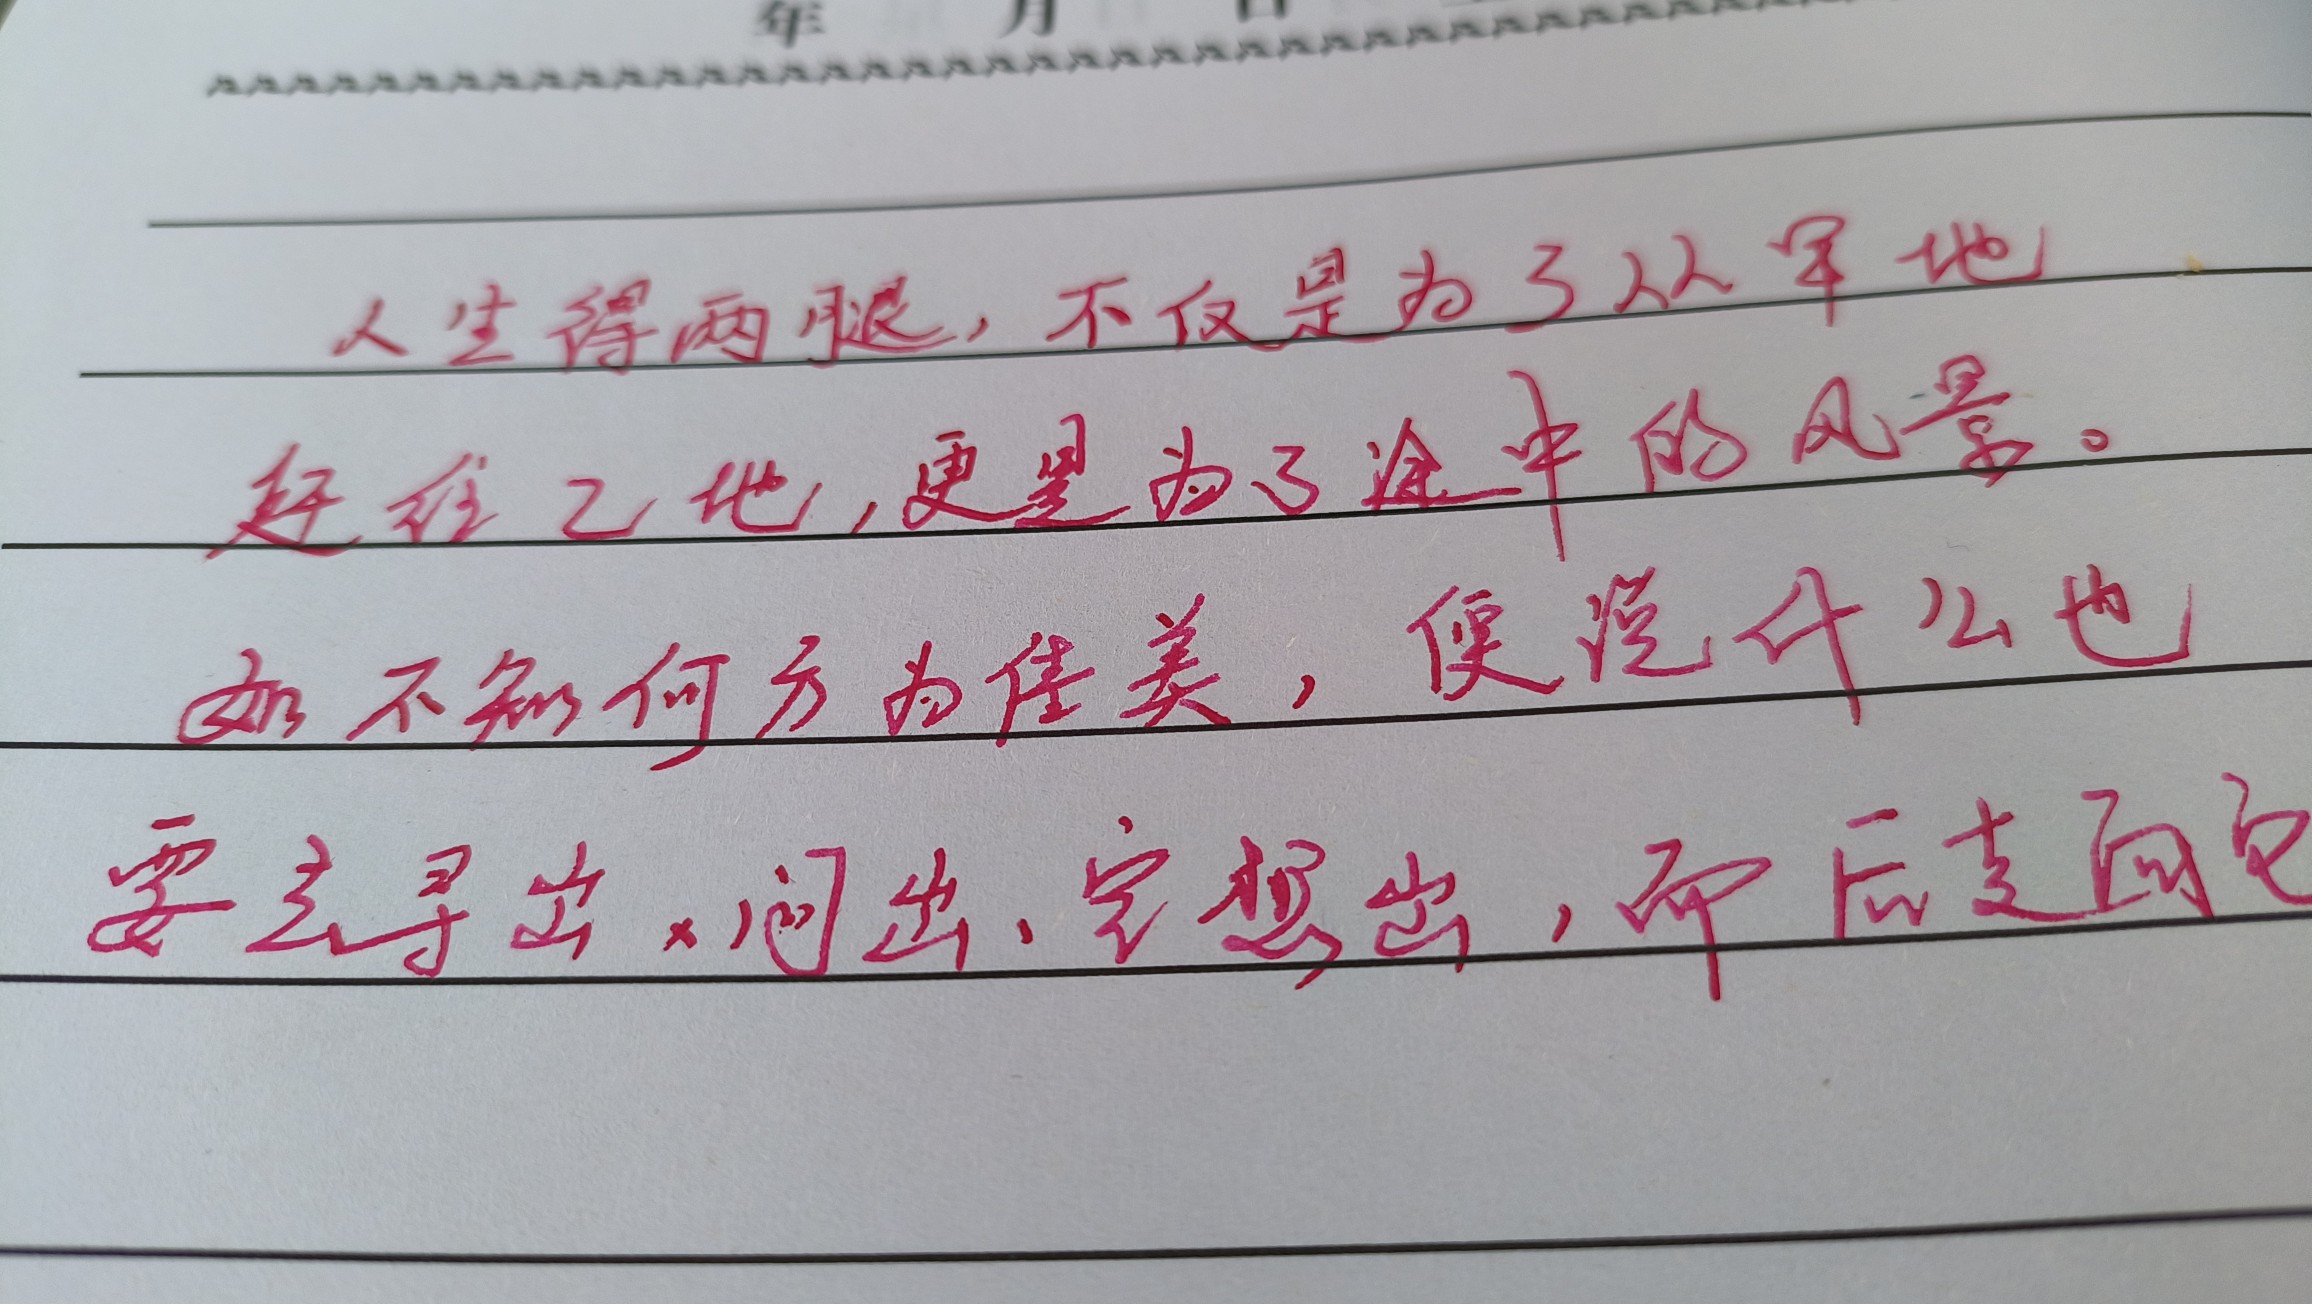 年 月 日
人生得两腿，不仅是为了从甲地
赶往乙地，更是为了途中的风景。
如不知何方为佳美，便说什么也
要去寻出、问出、它想出，而后走向它